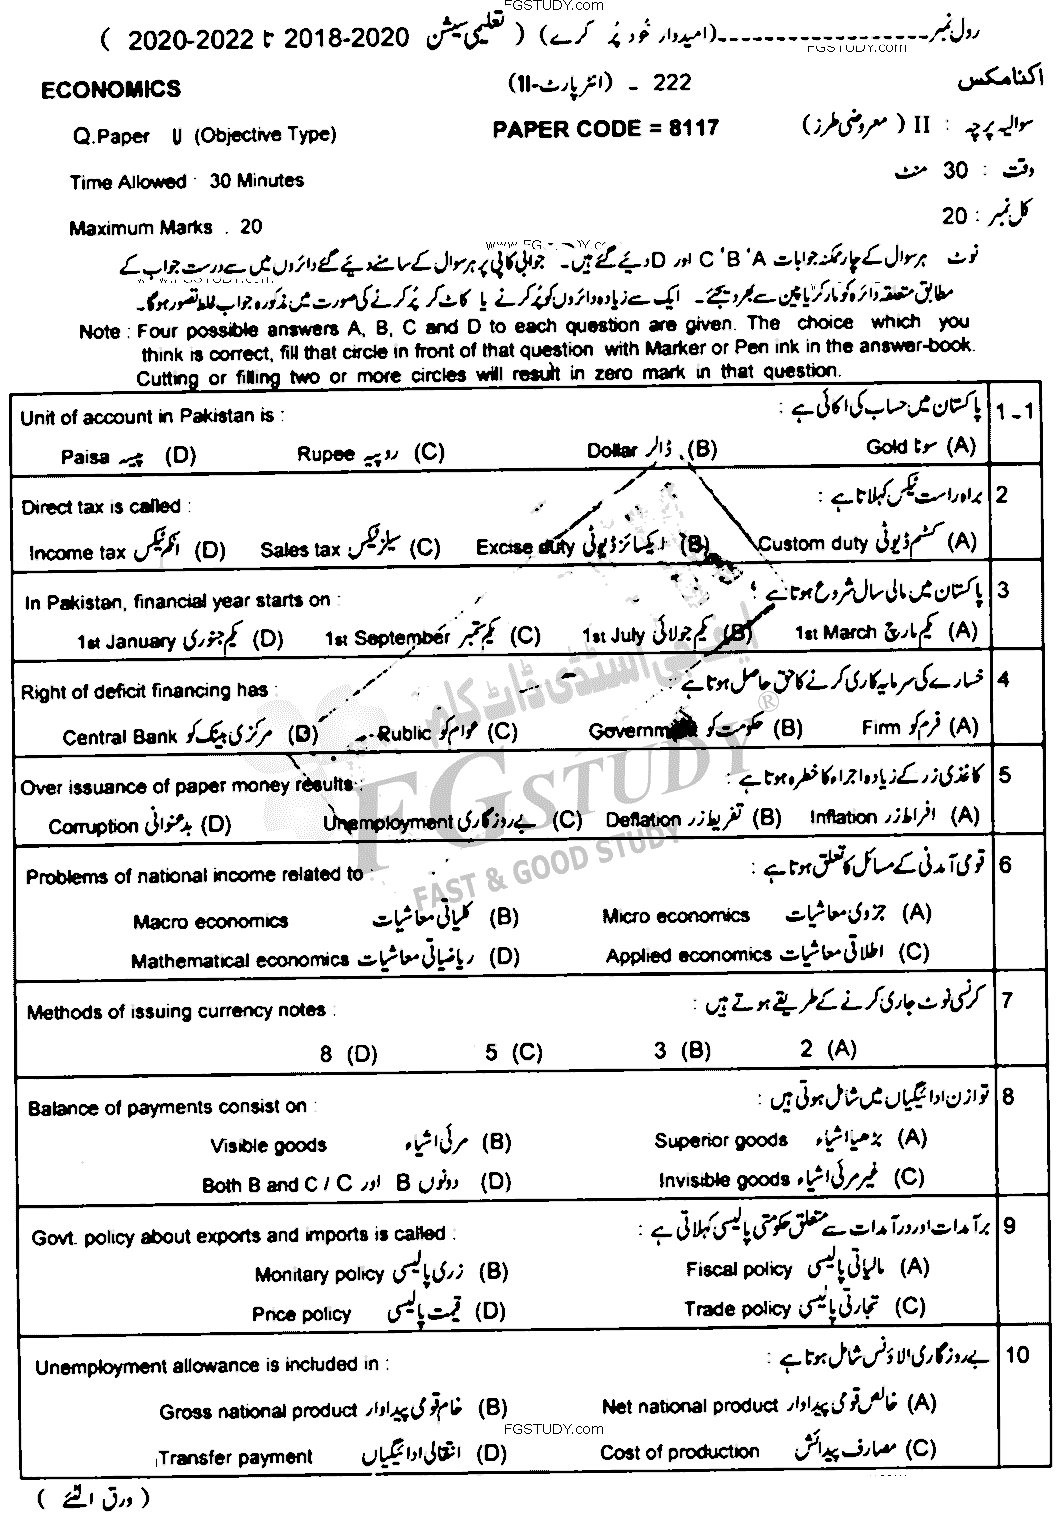 FGSTUDY.com
رولنمبر--------------------(امیدوار خود پُر کرے) ( تعلیمی سیشن 2020-2018 تا 2022-2020 )
FGSTUDY.com
ECONOMICS 222 - (انٹر پارٹ-II) اکنامکس
Q.Paper II (Objective Type) PAPER CODE = 8117 سوالیہ پرچہ : II ( معروضی طرز)
Time Allowed : 30 Minutes وقت : 30 منٹ
Maximum Marks . 20 کل نمبر : 20
نوٹ ہر سوال کے چار ممکنہ جوابات A'B'C اور D دیئے گئے ہیں۔ جوابی کاپی پر ہر سوال کے سامنے دیئے گئے دائروں میں سے درست جواب کے
مطابق متعلقہ دائرہ کو مارکر یا پین سے بھر دیجئے۔ ایک سے زیادہ دائروں کو پُر کرنے یا کاٹ کر پُر کرنے کی صورت میں مذکورہ جواب غلط تصور ہوگا۔
Note : Four possible answers A, B, C and D to each question are given. The choice which you
think is correct, fill that circle in front of that question with Marker or Pen ink in the answer-book.
Cutting or filling two or more circles will result in zero mark in that question.
Unit of account in Pakistan is : پاکستان میں حساب کی اکائی ہے : 1-1
Paisa پیسہ (D) Rupee روپیہ (C) Dollar ڈالر (B) Gold سونا (A)
Direct tax is called : براہ راست ٹیکس کہلاتا ہے : 2
Income tax انکم ٹیکس (D) Sales tax سیلز ٹیکس (C) Excise duty ایکسائز ڈیوٹی (B) Custom duty کسٹم ڈیوٹی (A)
In Pakistan, financial year starts on : پاکستان میں مالی سال شروع ہوتا ہے : 3
1st January یکم جنوری (D) 1st September یکم ستمبر (C) 1st July یکم جولائی (B) 1st March یکم مارچ (A)
Right of deficit financing has : خسارے کی سرمایہ کاری کرنے کا حق حاصل ہوتا ہے : 4
Central Bank مرکزی بینک کو (D) Public عوام کو (C) Government حکومت کو (B) Firm فرم کو (A)
Over issuance of paper money results : کاغذی زر کے زیادہ اجراء کا خطرہ ہوتا ہے : 5
Corruption بدعنوانی (D) Unemployment بے روزگاری (C) Deflation تفریط زر (B) Inflation افراط زر (A)
Problems of national income related to : قومی آمدنی کے مسائل کا تعلق ہوتا ہے : 6
Macro economics کلیاتی معاشیات (B) Micro economics جزوی معاشیات (A)
Mathematical economics ریاضیاتی معاشیات (D) Applied economics اطلاقی معاشیات (C)
Methods of issuing currency notes : کرنسی نوٹ جاری کرنے کے طریقے ہوتے ہیں : 7
8 (D) 5 (C) 3 (B) 2 (A)
Balance of payments consist on : توازن ادائیگیاں میں شامل ہوتی ہیں : 8
Visible goods مرئی اشیاء (B) Superior goods بڑھیا اشیاء (A)
Both B and C / C اور B دونوں (D) Invisible goods غیر مرئی اشیاء (C)
Govt. policy about exports and imports is called : برآمدات اور درآمدات سے متعلق حکومتی پالیسی کہلاتی ہے : 9
Monitary policy زری پالیسی (B) Fiscal policy مالیاتی پالیسی (A)
Price policy قیمت پالیسی (D) Trade policy تجارتی پالیسی (C)
Unemployment allowance is included in : بے روزگاری الاؤنس شامل ہوتا ہے : 10
Gross national product خام قومی پیداوار (B) Net national product خالص قومی پیداوار (A)
FGSTUDY.com
Transfer payment انتقالی ادائیگیاں (D) Cost of production مصارف پیدائش (C)
( ورق الٹئے )
ایف جی اسٹڈی ڈاٹ کام
FGSTUDY ®
FAST & GOOD STUDY